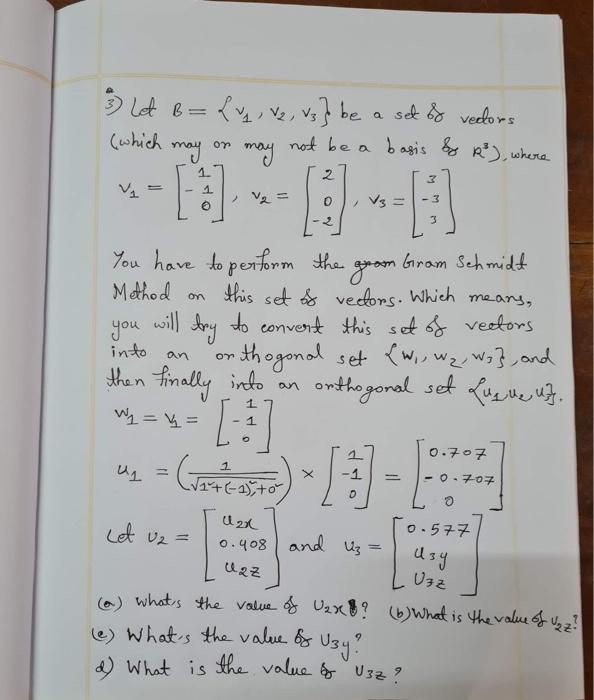 3) Let B = {v1, v2, v3} be a set of vectors
(which may or may not be a basis of R³), where
v1 = [1 -1 0], v2 = [2 0 -2], v3 = [3 -3 3]
You have to perform the gram Gram Schmidt
Method on this set of vectors. Which means,
you will try to convert this set of vectors
into an orthogonal set {w1, w2, w3}, and
then finally into an orthogonal set {u1, u2, u3}.
w1 = v1 = [1 -1 0]
u1 = (1/√(1²+(-1)²+0²)) × [1 -1 0] = [0.707 -0.707 0]
Let u2 = [u2x 0.408 u2z] and u3 = [0.577 u3y u3z]
(a) What's the value of u2x? (b) What is the value of u2z?
(c) What's the value of u3y?
d) What is the value of u3z?